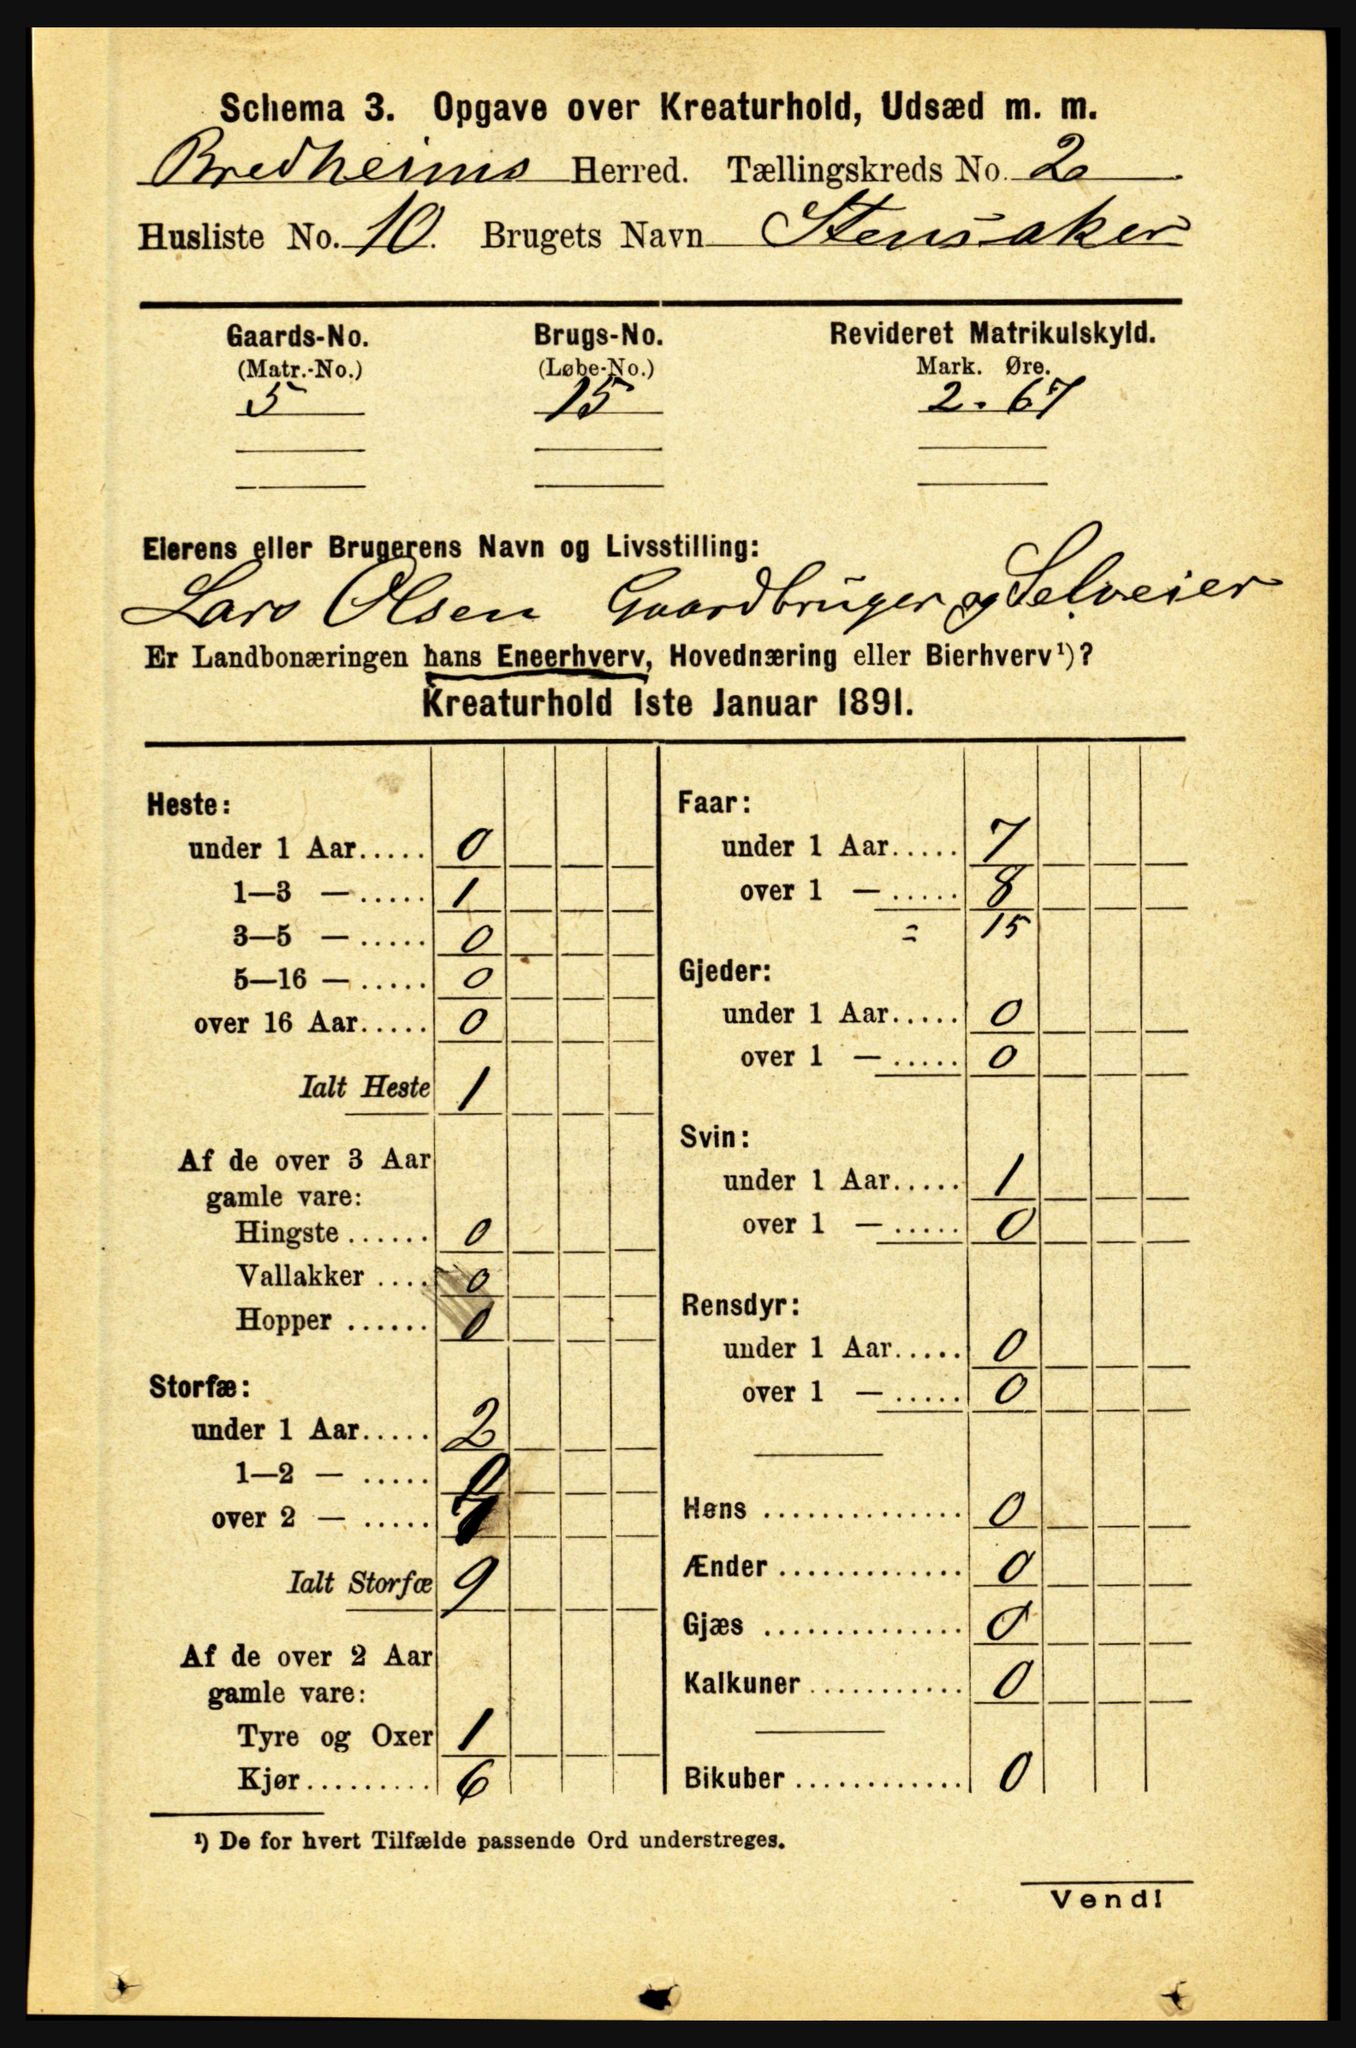 Schema 3. Opgave over Kreaturhold, Udsæd m. m.
Bredheims Herred. Tællingskreds No. 2
Husliste No. 10. Brugets Navn Stensaker
Gaards-No. Brugs-No. Revideret Matrikulskyld.
(Matr.-No.) (Løbe-No.) Mark. Øre.
5 15 2. 67
Eierens eller Brugerens Navn og Livsstilling:
Lars Olsen Gaardbruger og Selveier
Er Landbonæringen hans Eneerhverv, Hovednæring eller Bierhverv¹)?
Kreaturhold 1ste Januar 1891.
Heste:
under 1 Aar..... 0
1—3 — ..... 1
3—5 — ..... 0
5—16 — ..... 0
over 16 Aar..... 0
Ialt Heste 1
Af de over 3 Aar
gamle vare:
Hingste ...... 0
Vallakker .... 0
Hopper ...... 0
Storfæ:
under 1 Aar..... 2
1—2 — ..... 0
over 2 — .....
Ialt Storfæ 9
Af de over 2 Aar
gamle vare:
Tyre og Oxer 1
Kjør......... 6
Faar:
under 1 Aar..... 7
over 1 — ..... 8
= 15
Gjeder:
under 1 Aar..... 0
over 1 — ..... 0
Svin:
under 1 Aar..... 1
over 1 — ..... 0
Rensdyr:
under 1 Aar..... 0
over 1 — ..... 0
Høns .............. 0
Ænder ............. 0
Gjæs .............. 0
Kalkuner ........... 0
Bikuber ............. 0
¹) De for hvert Tilfælde passende Ord understreges.
Vend!